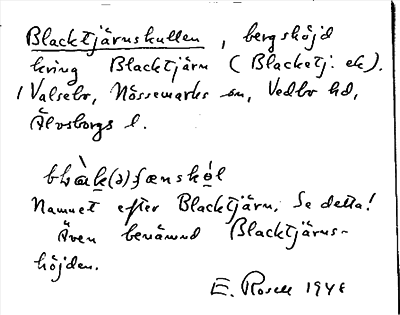 Blacktjärnskullen, bergshöjd
kring Blacktjärn (Blacketj. ek).
i Valsebo, Nössemarks sn, Vedbo hd,
Älvsborgs l.
Namnet efter Blacktjärn. Se detta!
Även benämnd Blacktjärns-
höjden.
E. Rosell 1948